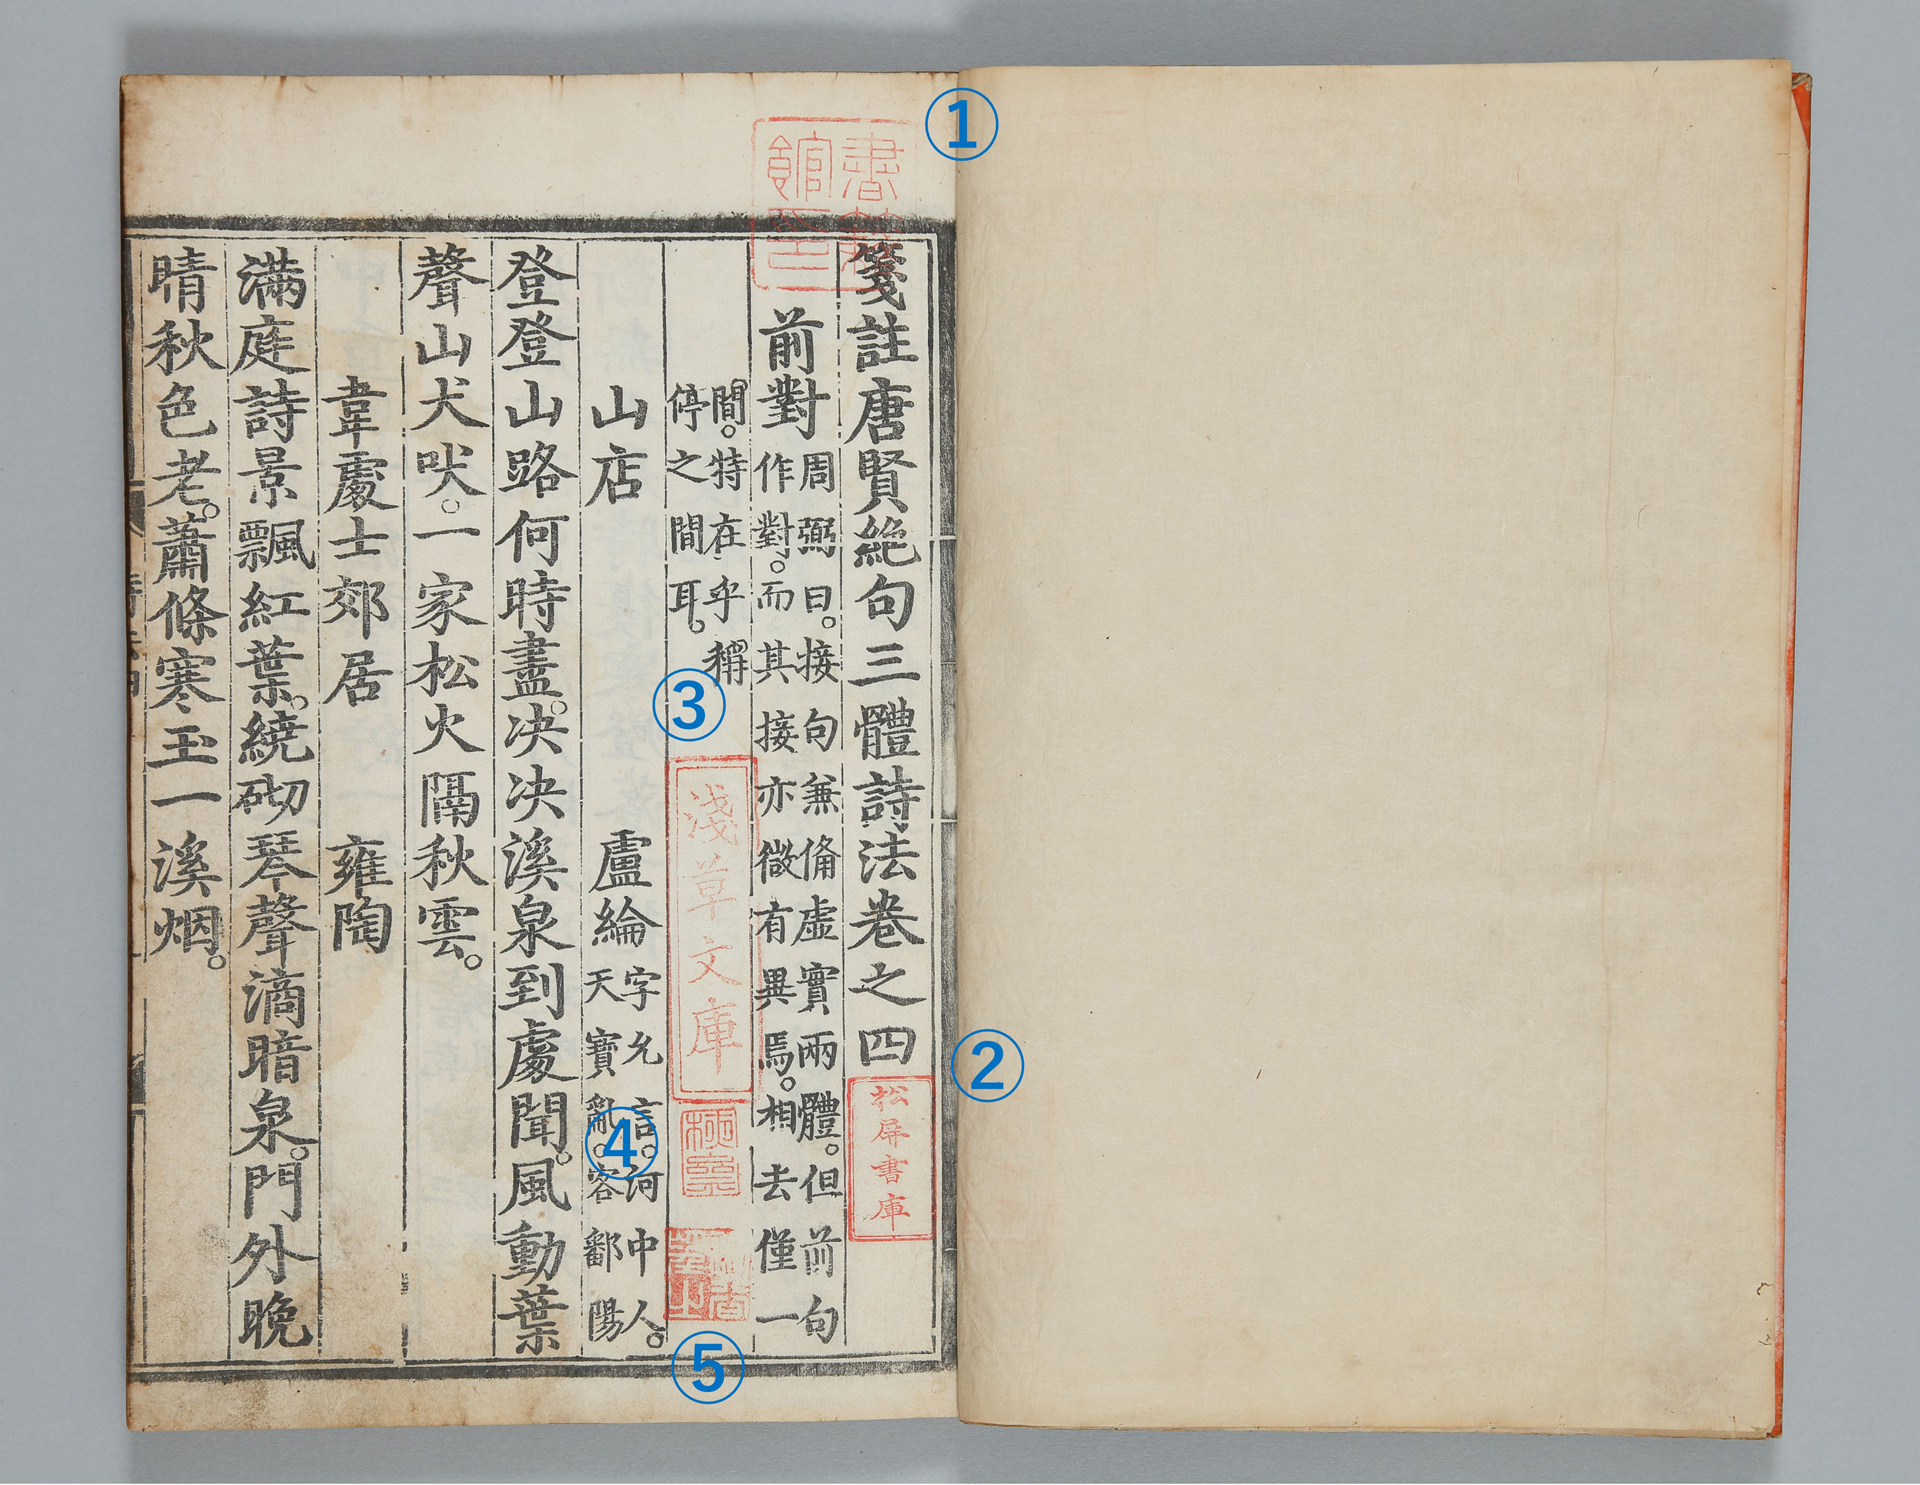 ①
書籍館印
箋註唐賢絶句三體詩法卷之四
②
松屏書庫
前對
周弼曰。接句兼俻虚實兩體。但前句
作對。而其接亦微有異焉。相去僅一
間。特在乎稱
停之間耳。
③
淺草文庫
④
⑤
山店 盧綸
字允言。河中人。
天寶亂。客鄱陽
登登山路何時盡。决决溪泉到處聞。風動葉
聲山犬吠。一家松火隔秋雲。
韋處士郊居 雍陶
滿庭詩景飄紅葉。繞砌琴聲滴暗泉。門外晚
晴秋色老。蕭條寒玉一溪烟。